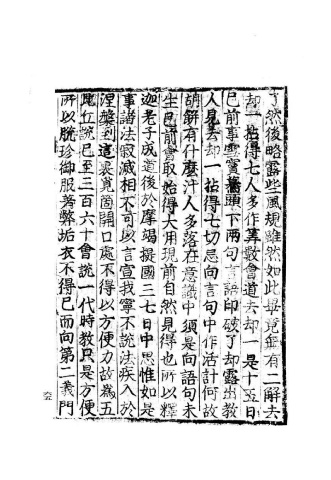 了然後略露些風規雖然如此畢竟無有二解去
却一拈得七人多作筭數會道去却一是十五日
已前事雪竇驀頭下兩句言語印破了却露出教
人見去却一拈得七切忌向言句中作活計何故
胡餅有什麼汁人多落在意識中須是向語句未
生已前會取始得大用現前自然見得也所以釋
迦老子成道後於摩竭提國三七日中思惟如是
事諸法寂滅相不可以言宣我寧不說法疾入於
涅槃到這裏覓箇開口處不得以方便力故爲五
比丘說已至三百六十會說一代時教只是方便
所以脫珍御服著弊垢衣不得已而向第二義門
六五